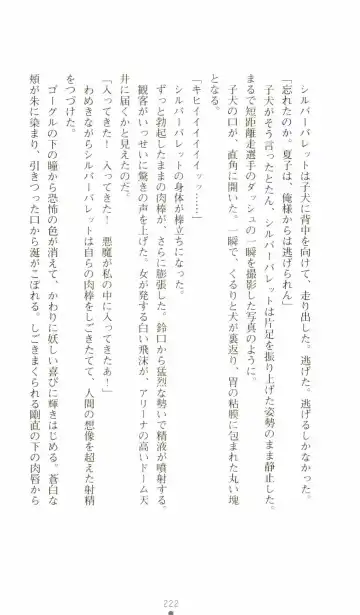 シルバーバレットは子犬に背中を向けて、走り出した。逃げた。逃げるしかなかった。
「忘れたのか。夏子は、俺様から逃げられん」
子犬がそう言ったとたん、シルバーバレットは片足を振り上げた姿勢のまま静止した。
まるで短距離走選手のダッシュの一瞬を撮影した写真のように。
子犬の口が、直角に開いた。一瞬で、くるりと犬が裏返り、胃の粘膜に包まれた丸い塊
となる。
「キヒイイイイイイッッ……」
シルバーバレットの身体が棒立ちになった。
ずっと勃起したままの肉棒が、さらに膨張した。鈴口から猛烈な勢いで精液が噴射する。
観客がいっせいに驚きの声を上げた。女が発する白い飛沫が、アリーナの高いドーム天
井に届くかと見えたのだ。
「入ってきた！　入ってきた！　悪魔が私の中に入ってきたあ！」
わめきながらシルバーバレットは自らの肉棒をしごきたてて、人間の想像を超えた射精
をつづけた。
ゴーグルの下の瞳から恐怖の色が消えて、かわりに妖しい喜びに輝きはじめる。蒼白な
頬が朱に染まり、引きつった口から涎がこぼれる。しごきまくられる剛直の下の肉唇から
222